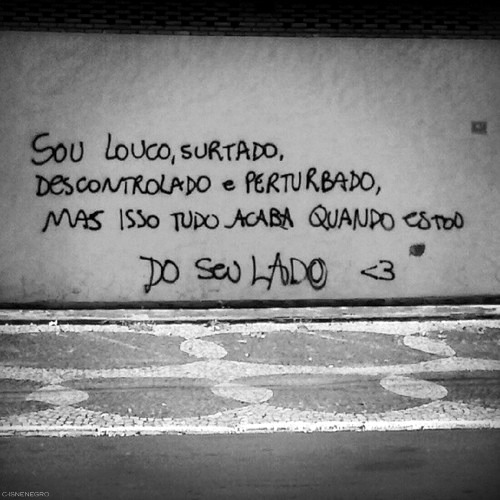 SOU LOUCO, SURTADO,
DESCONTROLADO e PERTURBADO,
MAS ISSO TUDO ACABA QUANDO ESTOU
DO SEU LADO <3
C-ISNENEGRO